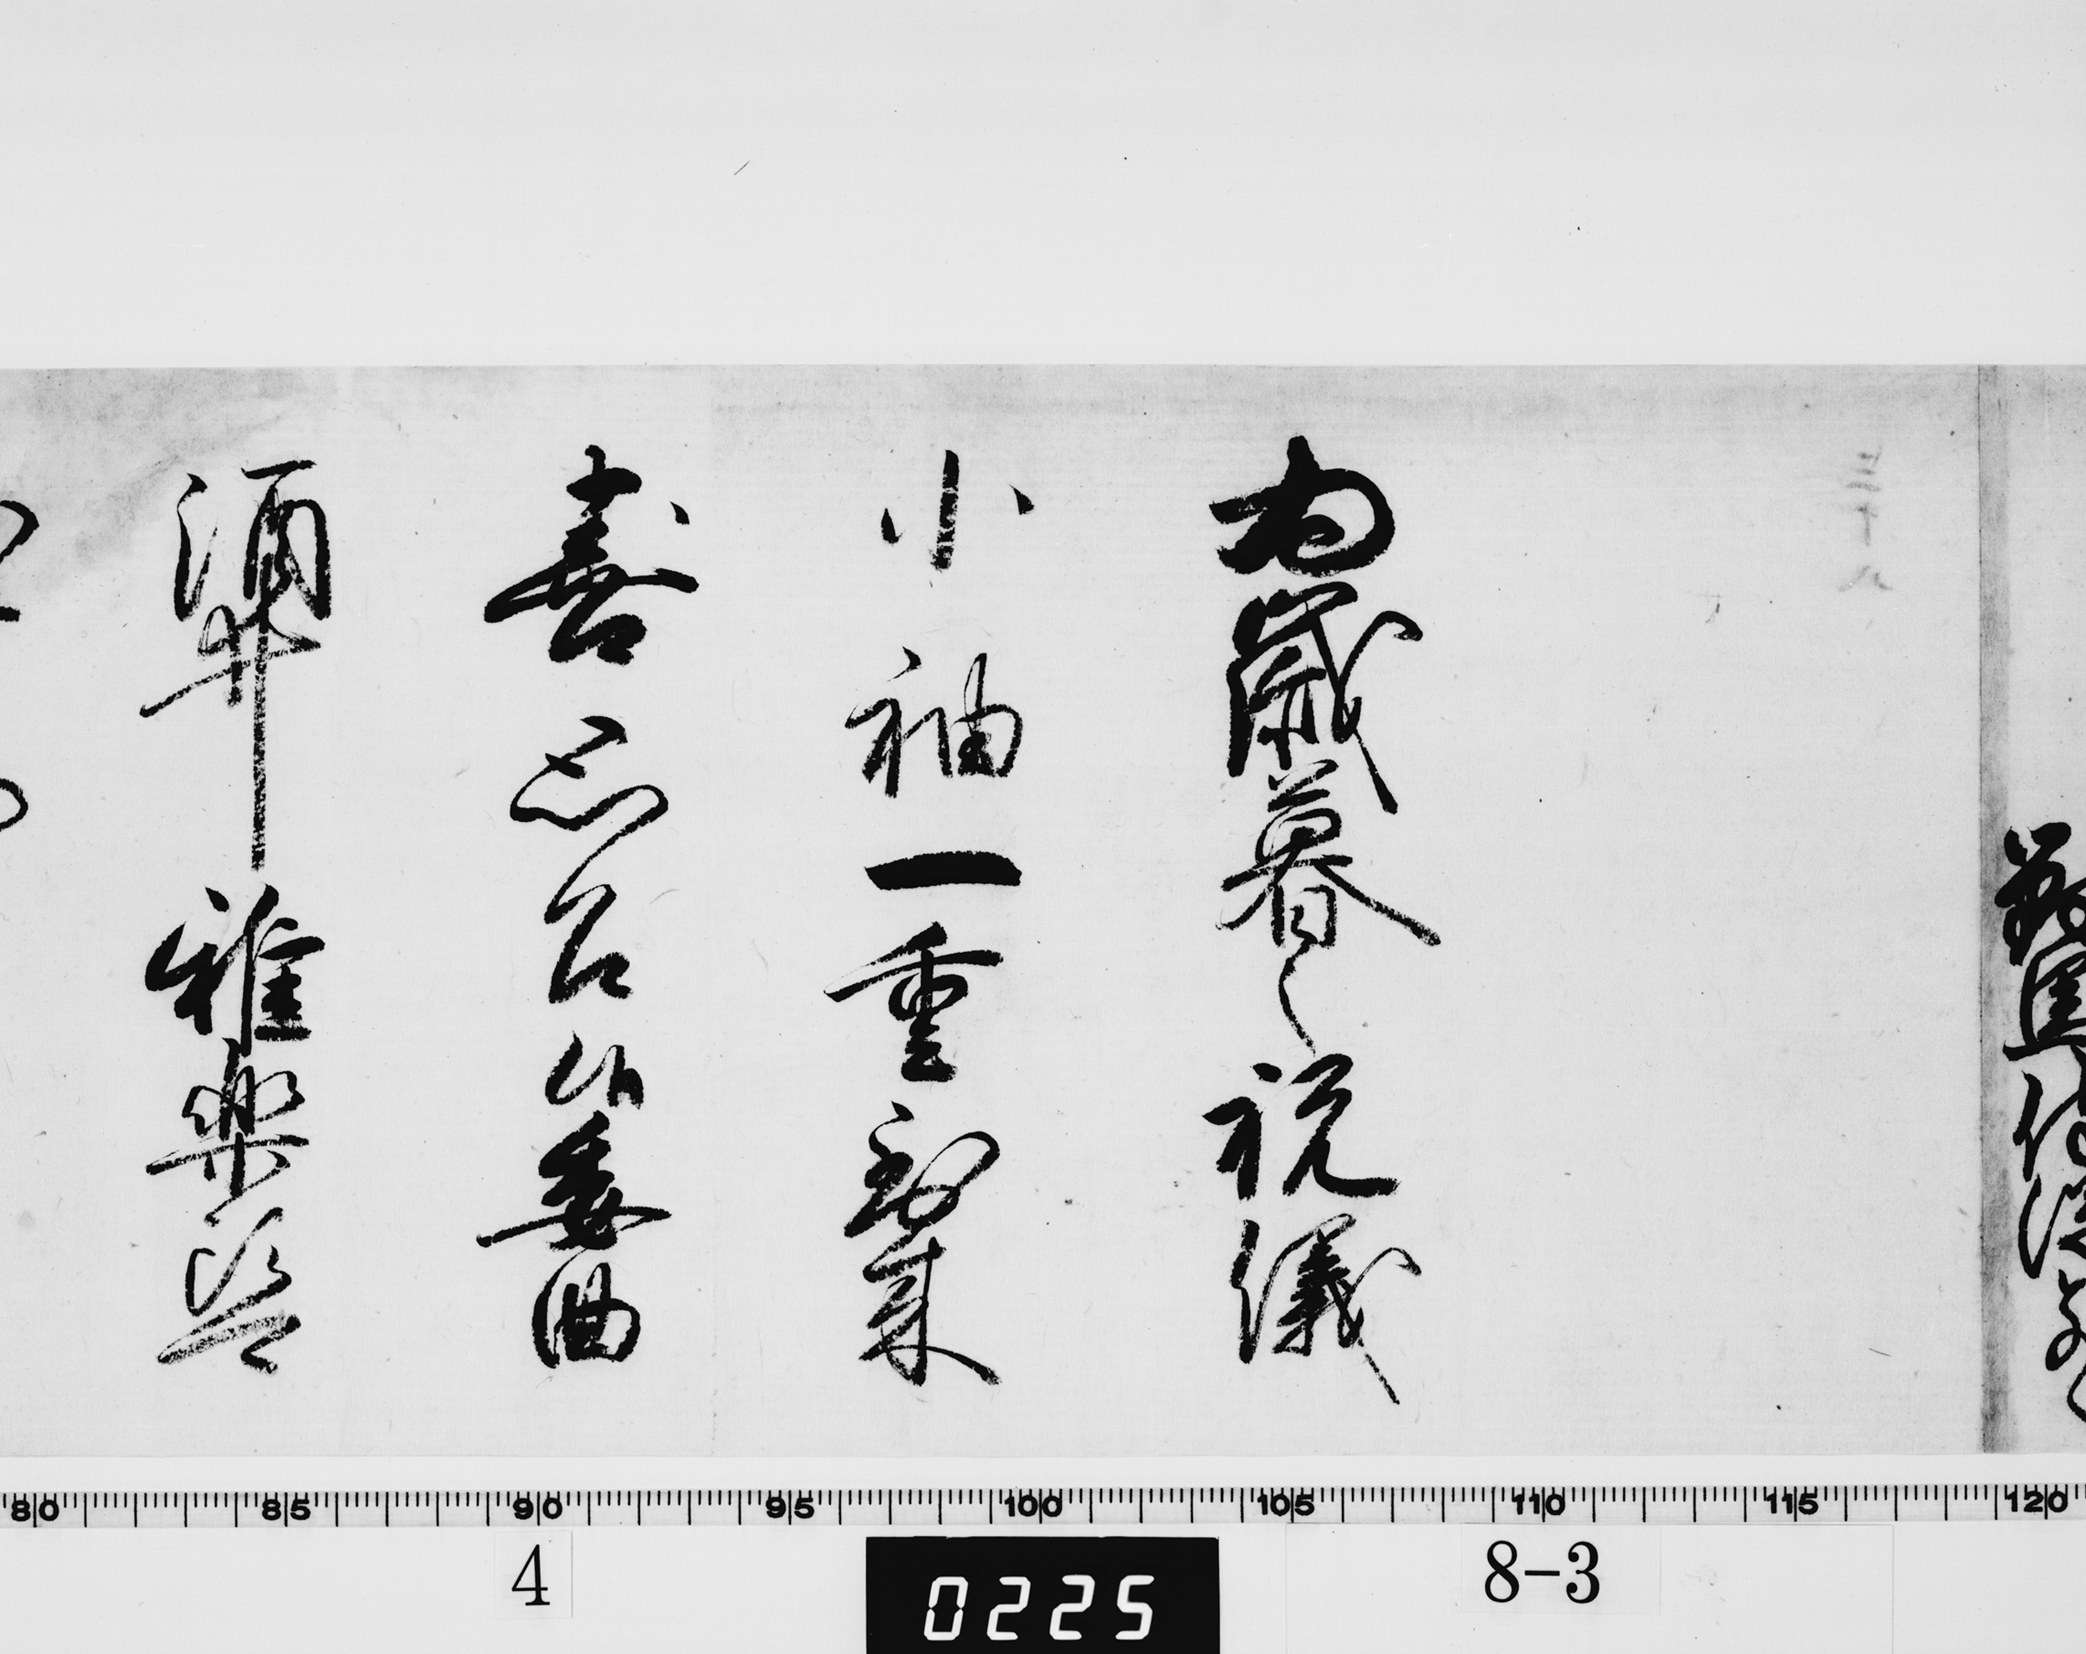 為歳暮之祝儀
小袖一重到来
喜思召候委曲
酒井雅楽頭
80 85 90 95 100 105 110 115 120
4
0225
8-3